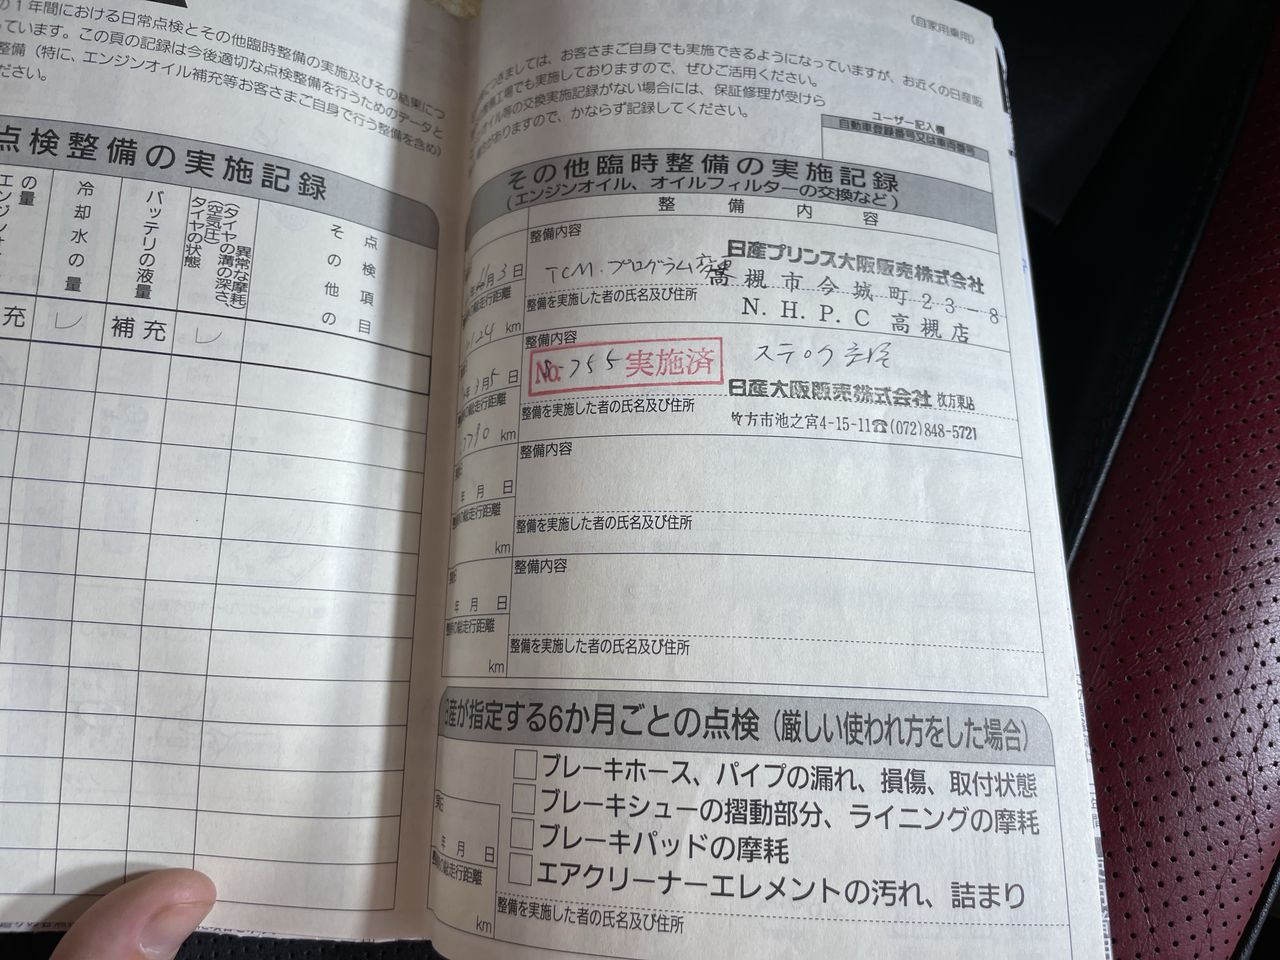 の1年間における日常点検とその他臨時整備の実施及びその結果につ
っています。この頁の記録は今後適切な点検整備を行うためのデータと
整備（特に、エンジンオイル補充等お客さまご自身で行う整備を含め）
ださい。
点検整備の実施記録
の量
冷却水の量
バッテリの液量
タイヤの状態
（空気圧）
（タイヤの溝の深さ、
異常な摩耗）
その他の
点検項目
充
補充
（自家用乗用）
つきましては、お客さまご自身でも実施できるようになっていますが、お近くの日産販
工場でも実施しておりますので、ぜひご活用ください。
オイル等の交換実施記録がない場合には、保証修理が受けら
がありますので、かならず記録してください。
ユーザー記入欄
自動車登録番号又は車両番号
その他臨時整備の実施記録
（エンジンオイル、オイルフィルターの交換など）
整備内容
整備内容
11月3日
TCM.プログラム
日産プリンス大阪販売株式会社
高槻市今城町23-8
N.H.P.C 高槻店
整備を実施した者の氏名及び住所
総走行距離
km
整備内容
No.755 実施済
月5日
日産大阪販売株式会社 枚方東店
枚方市池之宮4-15-11☎(072)848-5721
整備を実施した者の氏名及び住所
総走行距離
km
整備内容
年 月 日
総走行距離
整備を実施した者の氏名及び住所
km
整備内容
年 月 日
総走行距離
整備を実施した者の氏名及び住所
km
日産が指定する6か月ごとの点検（厳しい使われ方をした場合）
ブレーキホース、パイプの漏れ、損傷、取付状態
ブレーキシューの摺動部分、ライニングの摩耗
ブレーキパッドの摩耗
エアクリーナーエレメントの汚れ、詰まり
年 月 日
総走行距離
km
整備を実施した者の氏名及び住所